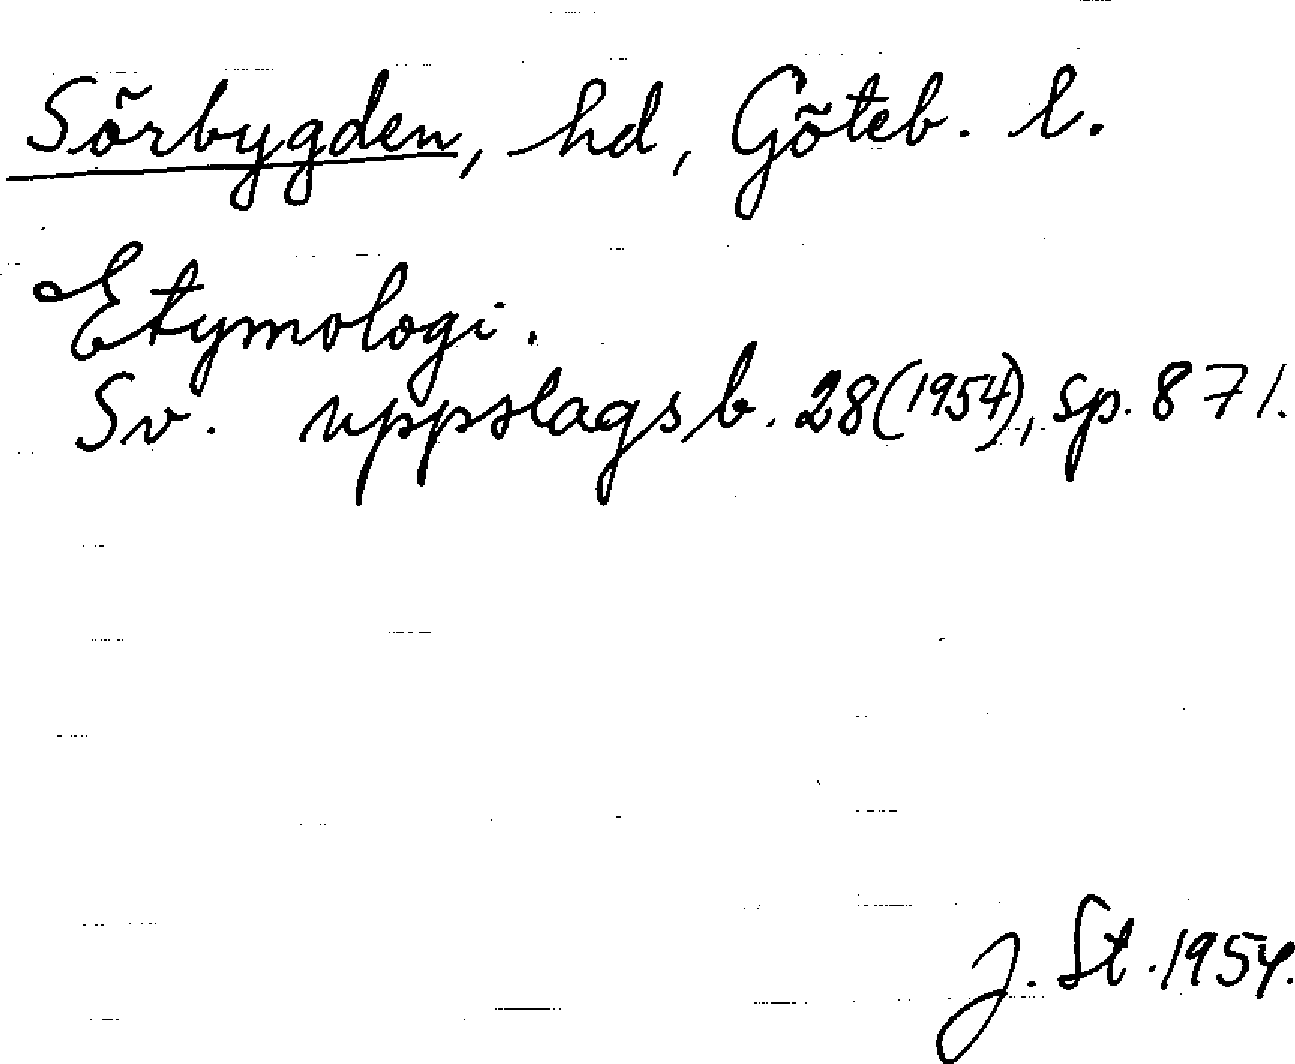 Sörbygden, hd, Göteb. l.
Etymologi.
Sv. uppslagsb. 28(1954), sp. 871.
J. St. 1954.